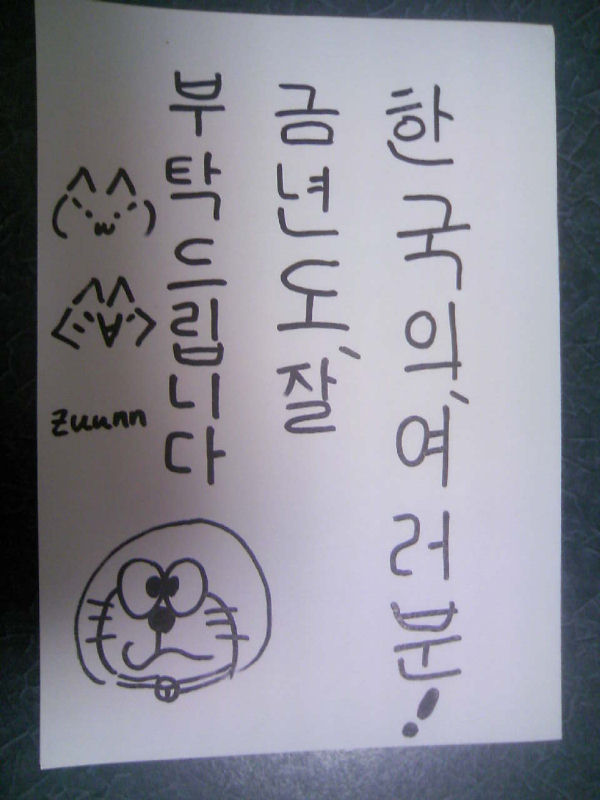 한국의、여러분!
금년도、잘
부탁드립니다
∧ ∧
(`・ω・´)
∧∧
<`∀´>
zuunn